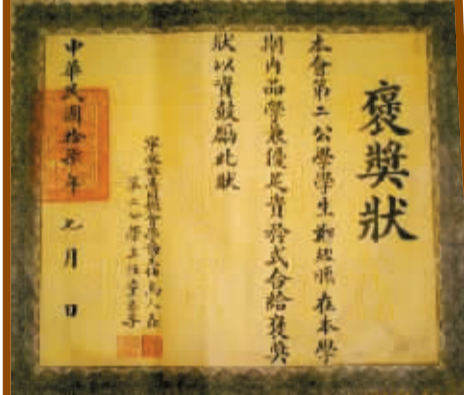 褒獎狀
本會第二公學學生鄭經順在本學
期內品學兼優足資矜式合給褒獎
狀以資鼓勵此狀
第二公學主任
中華民國拾柒年 七月 日